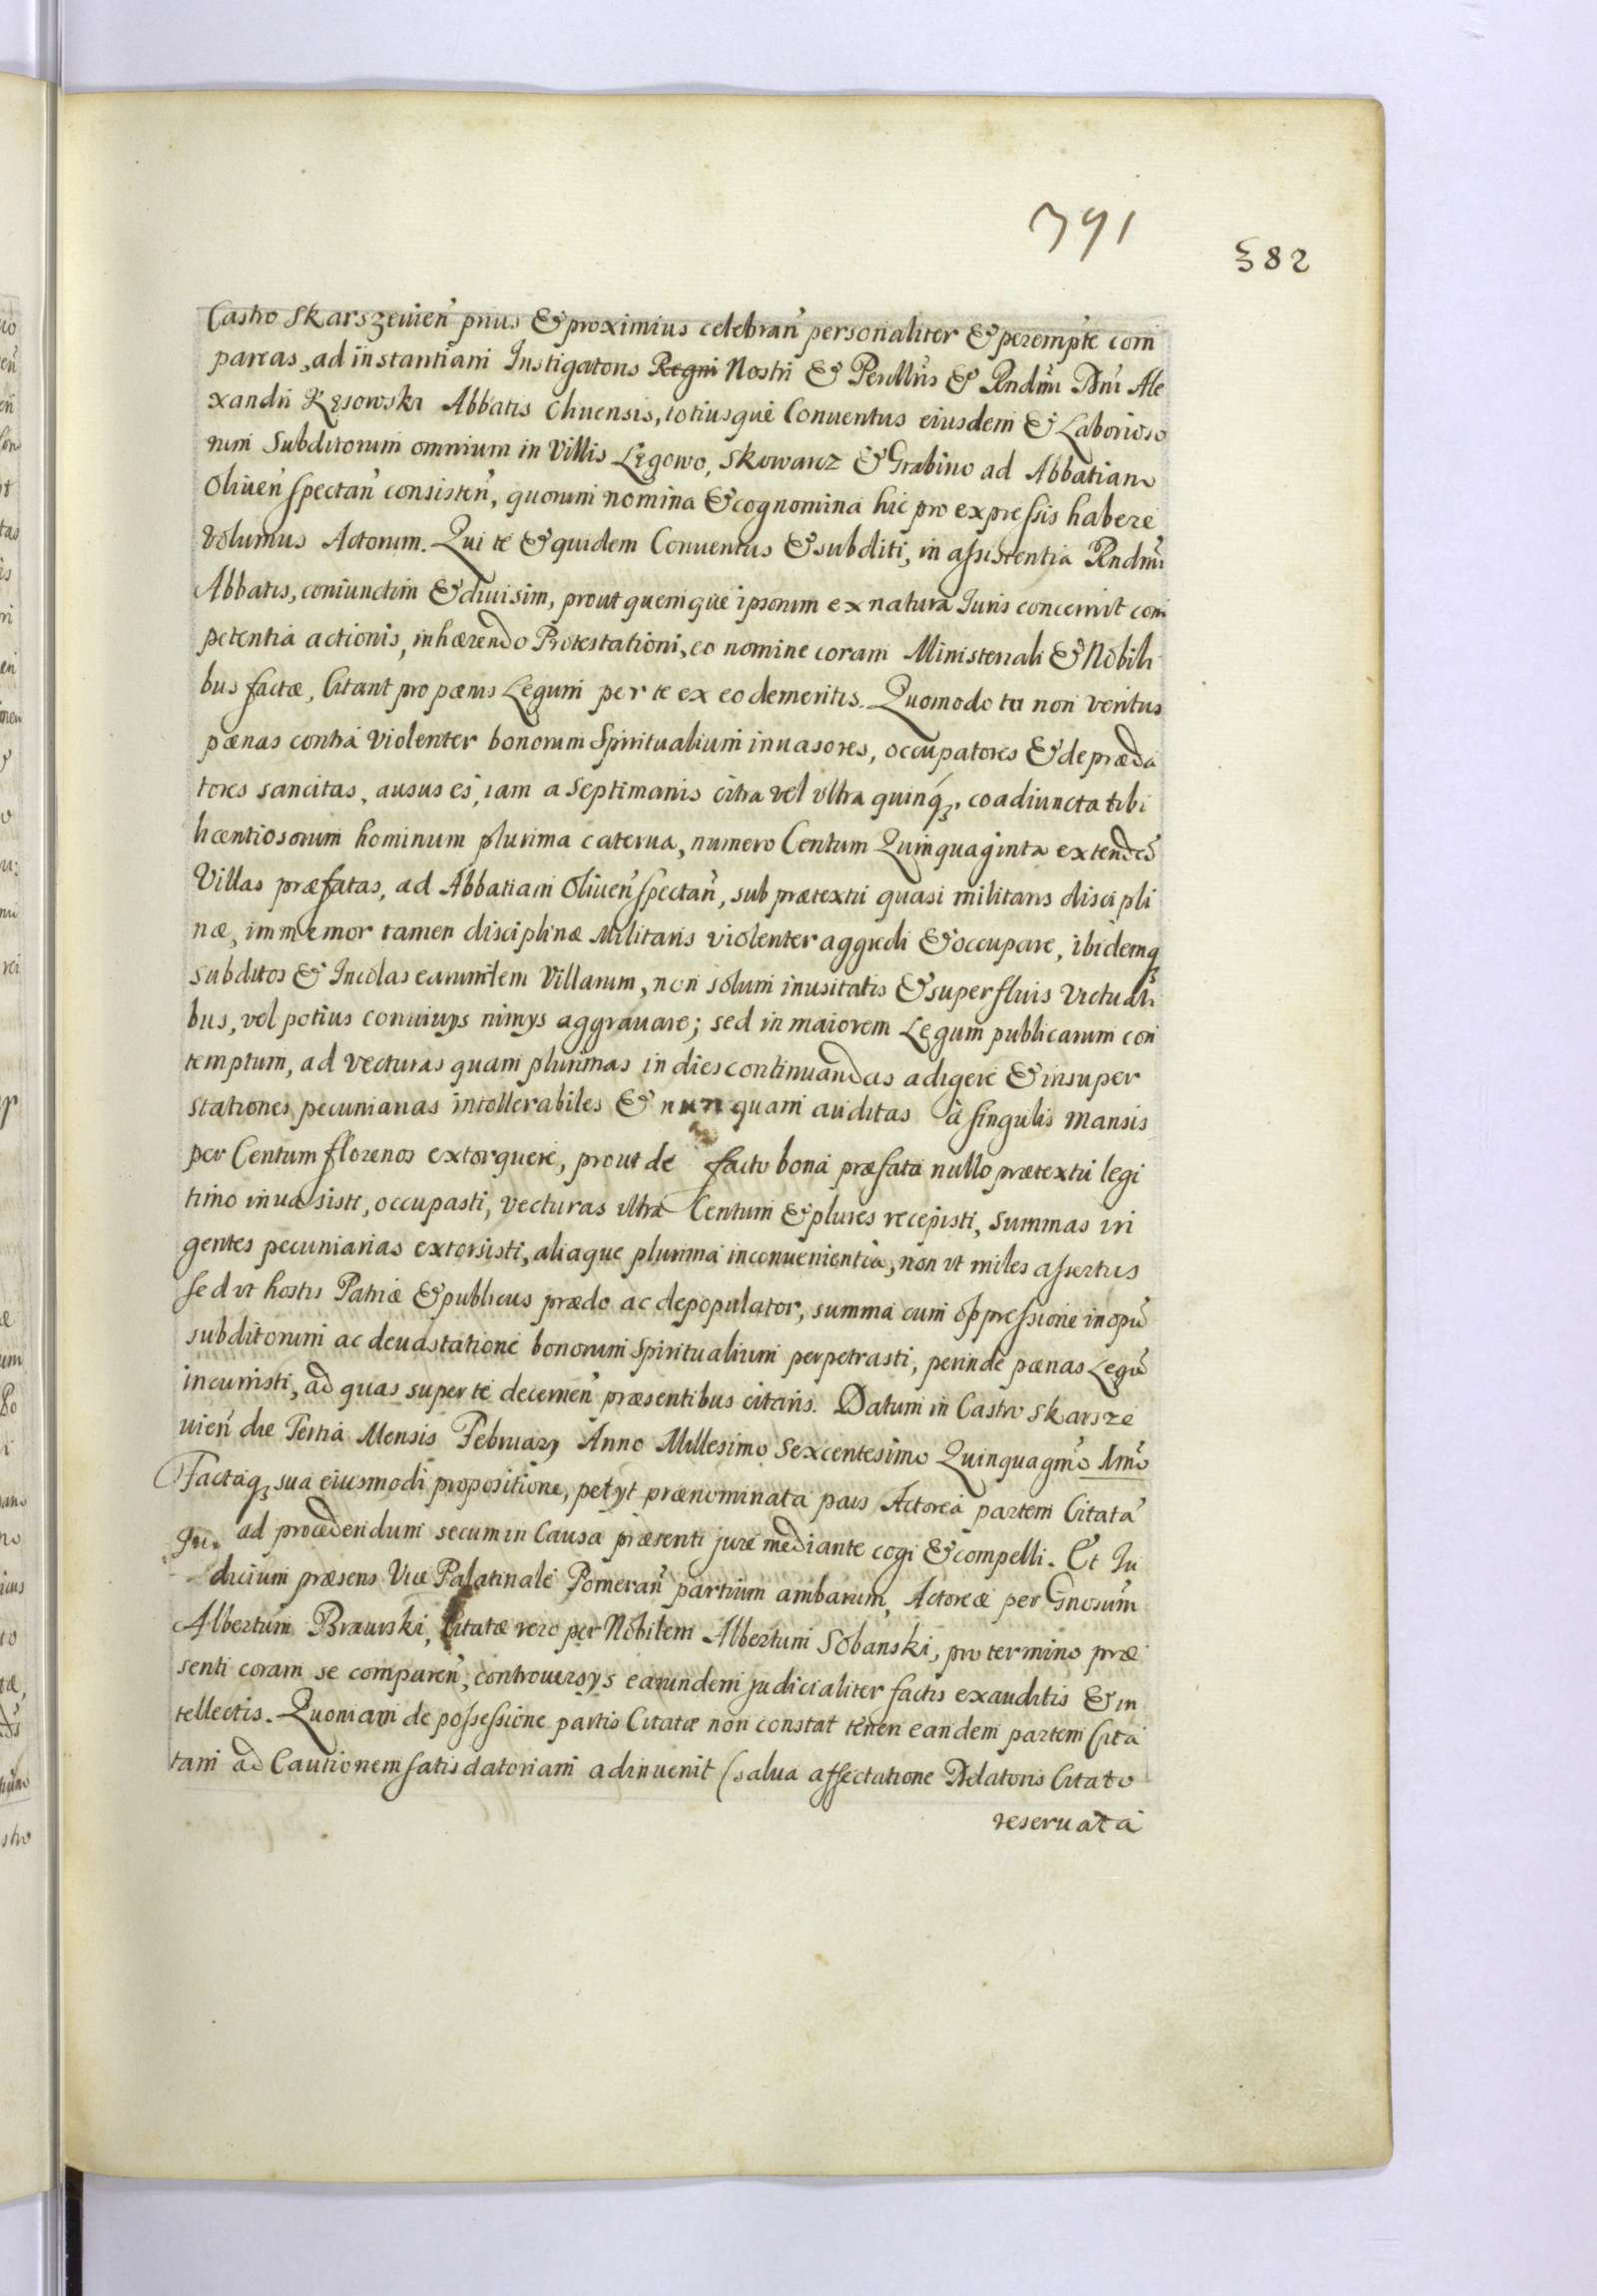 391
382
Castro Skarszeuień prius & proximius celebrań personaliter & perempte com
pareas, ad instantiam Instigatoris Regni Nostri & Perillris & Rndmi Dni Ale
xandri Kęsowski Abbatis Oliuensis, totiusque Conuentus eiusdem & Laborioso
rum Subditorum omnium in Villis Lęgowo, Skowarcz & Grabino ad Abbatiam
Oliueń spectań consisteń, quorum nomina & cognomina hic pro expressis habere
Volumus Actorum. Qui te & quidem Conuentus & subditi, in assistentia Rndmi
Abbatis, coniunctim & diuisim, prout quemque ipsorum ex natura Iuris concernit com
petentia actionis, inhærendo Protestationi, eo nomine coram Ministeriali & Nobili
bus factæ, Citant pro pænis Legum per te ex eo demeritis. Quomodo tu non veritus
pænas contra violenter bonorum Spiritualium inuasores, occupatores & depræda
tores sancitas, ausus es, iam a septimanis citra vel vltra quinq3, coadiuncta tibi
licentiosorum hominum plurima caterua, numero Centum Quinquaginta extendeń
Villas præfatas, ad Abbatiam Oliueń spectań, sub prætextu quasi militaris discipli
næ, immemor tamen disciplinæ Militaris violenter aggredi & occupare, ibidemq3
subditos & Incolas earumdem Villarum, non solum inusitatis & superfluis victuali
bus, vel potius conuiuys nimys aggrauare; sed in maiorem Legum publicarum con
temptum, ad vecturas quam plurimas in dies continuandas adigere & insuper
stationes pecuniarias intollerabiles & nunquam auditas à singulis mansis
per Centum florenos extorquere, prout de facto bona præfata nullo prætextu legi
timo inuasisti, occupasti, vecturas vltra Centum & plures recepisti, summas in
gentes pecuniarias extorsisti, aliaque plurima inconuenientia, non vt miles assertus
sed vt hostis Patriæ & publicus prædo ac depopulator, summa cum oppressione inopū
subditorum ac deuastatione bonorum Spiritualium perpetrasti, perinde pænas Legū
incurristi, ad quas super te decerneń præsentibus citaris. Datum in Castro Skarsze
uień die Tertia Mensis February Anno Millesimo Sexcentesimo Quinquagmo 1mo
Factaq3 sua eiusmodi propositione, petyt prænominata pars Actorea partem Citatā
ad procedendum secum in Causa præsenti jure mediante cogi & compelli. Et Iu
Iu. dicium præsens Vice Palatinale Pomerań partium ambarum, Actoreæ per Gnosum
Albertum Brauski, Citatæ vero per Nobilem Albertum Sobanski, pro termino præ
senti coram se compareń, controuersys earundem judicialiter factis exauditis & in
tellectis. Quoniam de possessione partis Citatæ non constat teneri eandem partem Cita
tam ad Cautionem satisdatoriam adinuenit (salua affectatione Delatoris Citato
reseruata